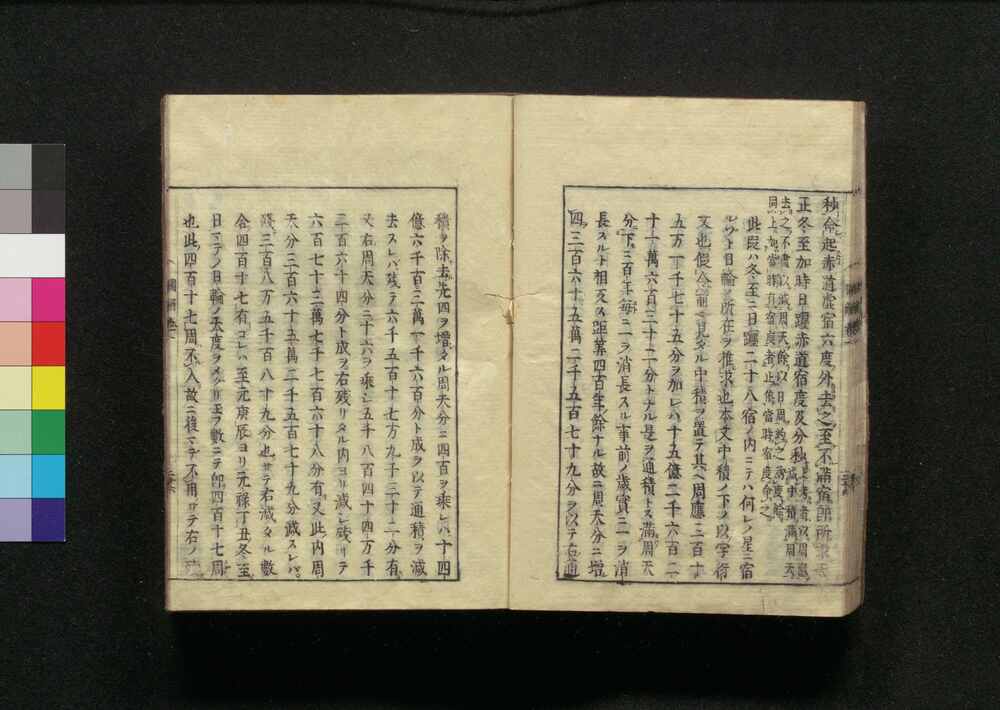 秒命起赤道虚宿六度外去之至不滿宿即所求天
正冬至加時日躔赤道宿度及分秒
去之不盡以減周天餘以日周約之為度餘
同上如當時有宿度者止依當時宿度命之
此段ハ冬至ニ日躔二十八宿ノ内ニテハ何レノ星ニ宿
ルゾト日輪ノ所在ヲ推求也本文中積ノ下ノ以字衍
文也假令前ニ見タル中積ヲ置テ其ヘ周應三百十
五万一千七十五分ヲ加レハ十五億二千六百二
十一萬六百三十二分トナル是ヲ通積トス滿周天
分下三百年毎ニ一ヲ消長スル事前ノ歳實ニ一ヲ消
長スルト相交ス距筭四百年餘ナル故ニ周天分ニ増
四三百六十五萬二千五百七十九分ヲ以テ右通
積ヲ除去先四ヲ増タル周天分ニ四百ヲ乘レハ十四
億六千百三萬一千六百分ト成ヲ以テ通積ヲ減
去スレバ殘テ六千五百十七万九千三十二分有
又右周天分ニ十六ヲ乘シ五千八百四十四万千
二百六十四分ト成ヲ右殘リタル内ヨリ減レ殘リテ
六百七十三萬七千七百六十八分有又此内周
天分三百六十五萬二千五百七十九分減スレバ
殘三百八万五千百八十九分也サテ右減タル數
合四百十七有コレハ至元庚辰ヨリ元祿丁丑冬至
日マテノ日輪ノ天度ヲメクリ玉フ數ニテ即四百十七周
也此四百十七周不入故ニ後マデ不用サテ右ノ殘